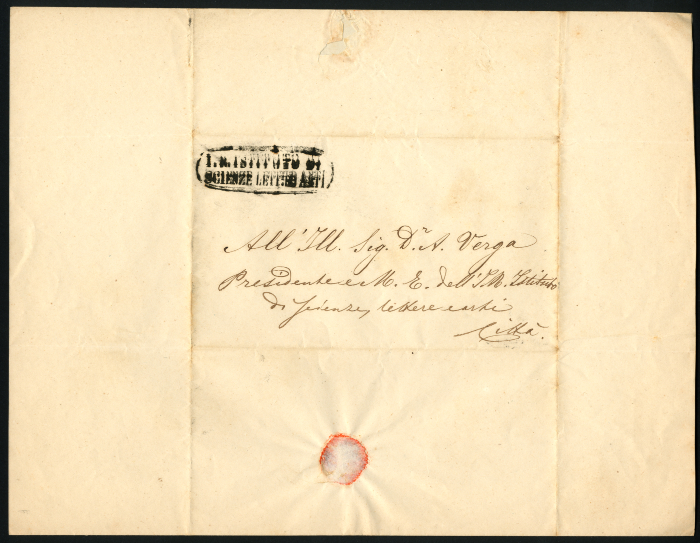 I. R. ISTITUTO DI
SCIENZE LETT. ED ARTI
All' Ill. Sig. Dr. A. Verga
Presidente e M. E. dell' I. R. Istituto
di Scienze, lettere e arti
Città.